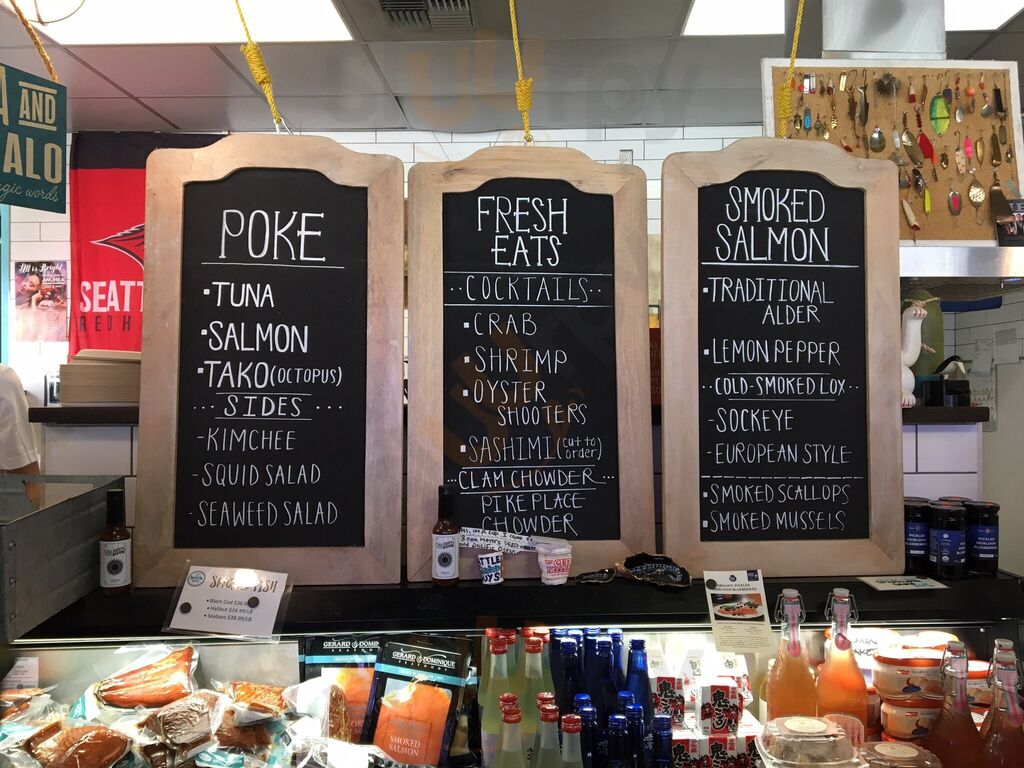 AND
ALO
gic words
All is Bright
SEATT
REDH
POKE
•TUNA
•SALMON
•TAKO(OCTOPUS)
···SIDES···
-KIMCHEE
-SQUID SALAD
-SEAWEED SALAD
FRESH
EATS
··COCKTAILS··
•CRAB
•SHRIMP
•OYSTER
SHOOTERS
•SASHIMI(cut to
order)
CLAM CHOWDER
PIKE PLACE
CHOWDER
SMOKED
SALMON
•TRADITIONAL
ALDER
•LEMON PEPPER
··COLD-SMOKED LOX··
-SOCKEYE
-EUROPEAN STYLE
•SMOKED SCALLOPS
•SMOKED MUSSELS
SMOKED FISH
• Black Cod $36
• Halibut $26.99/LB
• Seabass $38.99/LB
ORGANIC PICKLED
HEIRLOOM BLUEBERRIES
GERARD & DOMINIQUE
SEAFOODS
GERARD & DOMINIQUE
SEAFOODS
SMOKED
SALMON